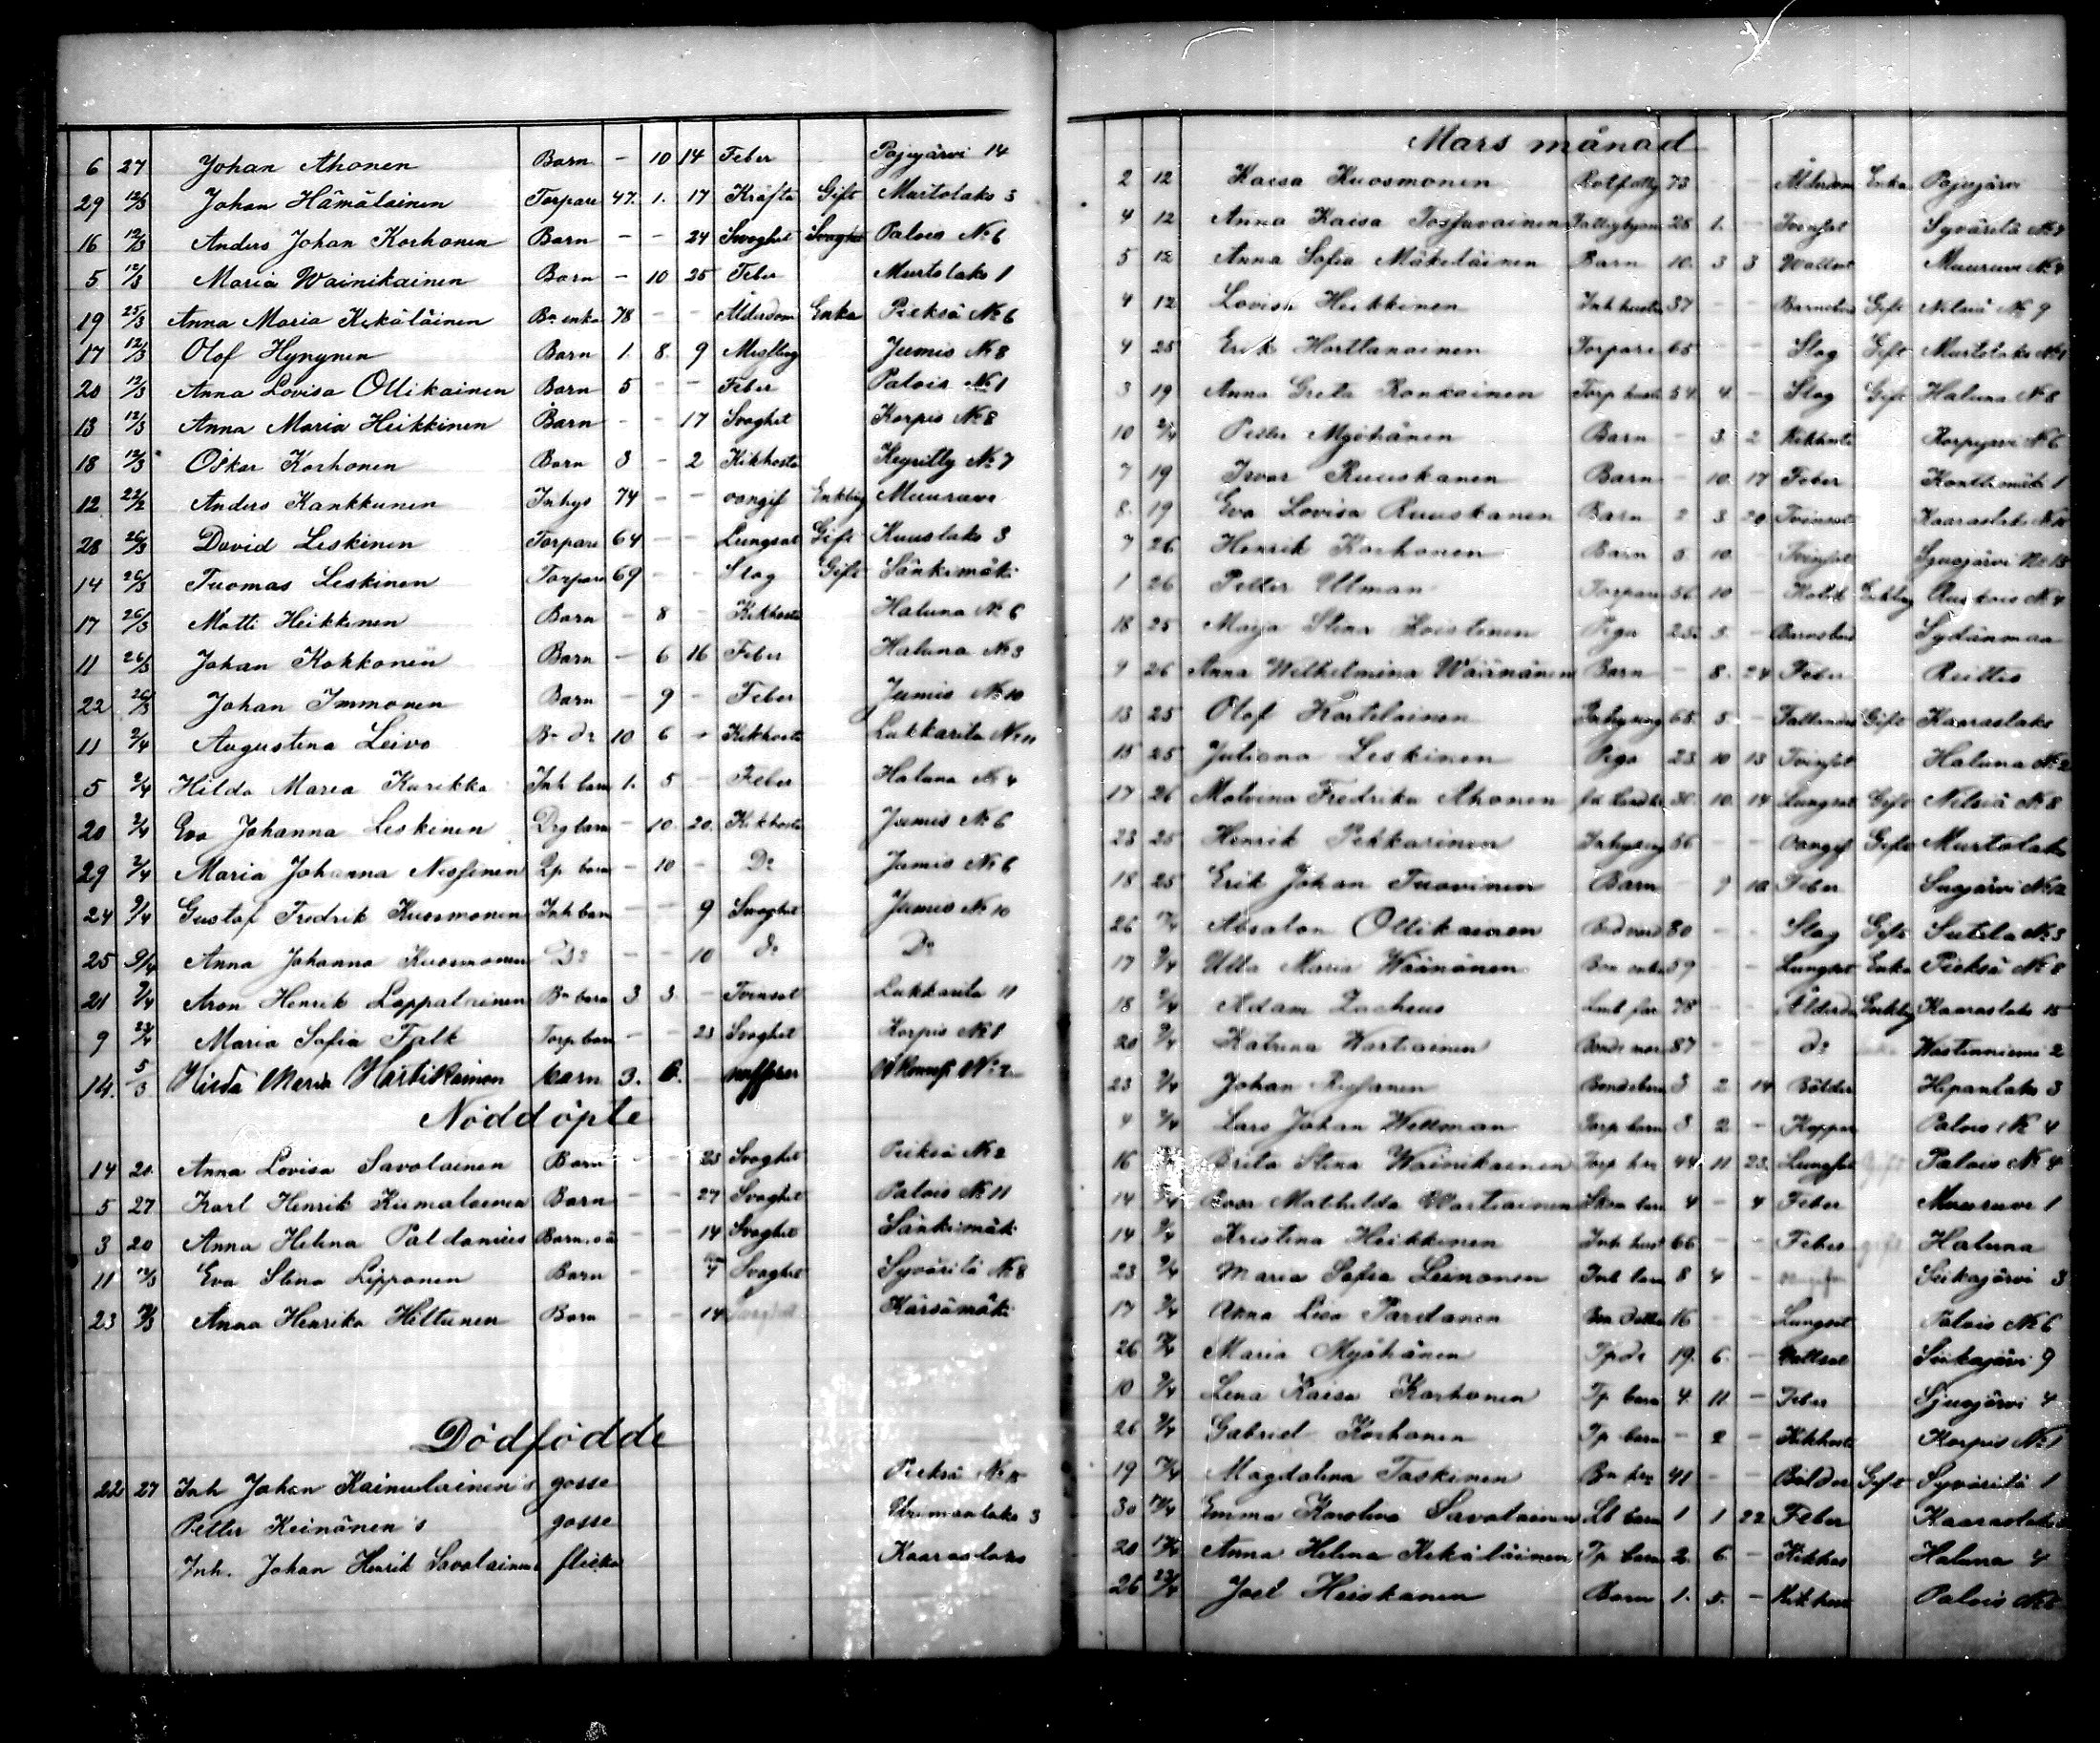 6 27 Johan Ahonen Barn - 10 14 Feber Pajujärvi 14
29 12/3 Johan Hämäläinen Torpare 47. 1. 17 Kräfta Gift Murtolaks 3
16 12/3 Anders Johan Korhonen Barn - - 24 Svaghet Svaghet Palois No 6
5 12/3 Maria Wainikainen Barn - 10 25 Feber Murtolaks 1
19 25/3 Anna Maria Kekäläinen Be enka 78 - - Ålderdom Enka Pieksä No 6
17 12/3 Olof Hynynen Barn 1. 8. 9 Messling Jumis No 8
20 12/3 Anna Lovisa Ollikainen Barn 5 - - Feber Palois No 1
13 12/3 Anna Maria Heikkinen Barn - - 17 Svaghet Korpis No 8
18 12/3 Oskar Korhonen Barn 3 - 2 Kikhosta No 7
12 22/2 Anders Kankkunen Inhys 74 - - oangif Enkling Muuruve
28 26/3 David Leskinen Torpare 64 - - Lungsot Gift Kuuslaks 3
14 26/3 Tuomas Leskinen Torpare 69 - - Slag Gift Sänkimäki
17 26/3 Matti Heikkinen Barn - 8 - Kikhosta Haluna No 6
11 26/3 Johan Kokkonen Barn - 6 16 Feber Haluna No 3
22 26/3 Johan Immonen Barn - 9 - Feber Jumis No 10
11 2/4 Augustina Leivo Be dr 10 6 - Kikhosta Lukkarila No 11
5 2/4 Hilda Maria Kurikka Inh barn 1. 5 - Feber Haluna No 4
20 2/4 Eva Johanna Leskinen Drg barn - 10. 20. Kikhosta Jumis No 6
29 2/4 Maria Johanna Nissinen barn - 10 - Do Jumis No 6
24 9/4 Gustaf Fredrik Kuosmonen Inh barn - - 9 Svaghet Jumis No 10
25 9/4 Anna Johanna Kuosmonen Do - - 10 do Do
21 9/4 Aron Henrik Lappalainen Be barn 3 3. - Tvinsot Lukkarila 11
9 23/4 Maria Sofia Falk Torp barn - - 23 Svaghet Korpis No 8
14. 5/3 Hilda Maria Hartikainen barn 3. 6. No 2
Nöddöpte
14 20 Anna Lovisa Savolainen Barn - - 23 Svaghet Pieksä No 2
5 27 Karl Henrik Kiimalainen Barn - - 27 Svaghet Palois No 11
3 20 Anna Helena Paldanius Barn, oä - - 14 Svaghet Sänkimäki
11 12/3 Eva Stina Lipponen Barn - Svaghet Syvärilä No 8
23 Anna Henrika Hiltunen Barn - - 14 Svaghet Kärsämäki
Dödfödde
22 27 Inh Johan Kainulainen's gosse Pieksä No 15
Petter Keinänen's gosse 3
Inh. Johan Henrik Savolainens flicka Kaaraslaks
Mars månad
2 12 Kaisa Kuosmonen Rotfattig 73 - - Ålderdom Enka Pajujärvi
4 12 Anna Kaisa Tossavainen 28 1. - Tvinsot Syvärilä No 7
5 12 Anna Sofia Mäkeläinen Barn 10. 3 3 Wattsot Muuruve No 4
4 12 Lovisa Heikkinen Inh hustru 37 - - Barnsbörd Gift Nilsiä No 9
4 25 Erik Horttanainen Torpare 65 - - Slag Gift Murtolaks No 1
3 19 Anna Greta Ronkainen Torp hustru 54 4 - Slag Gift Haluna No 8
10 2/4 Petter Myöhänen Barn - 3. 2 Kikhosta Korpijärvi No 6
7 19 Ivar Ruuskanen Barn - 10 17 Feber Konttimäki 1
8. 19 Eva Lovisa Ruuskanen Barn 2 3 20 Tvinsot Kaaraslaks No 15
7 26 Henrik Korhonen Barn 5. 10. - Tvinsot Syväjärvi No 13
1 26 Petter Ulman Torpare 56 10 - Kolik Enkling No 4
18 25 Maja Stina Koistinen Piga 25. 5. - Barnsbörd Sydänmaa
9 26 Anna Wilhelmina Wäänänen Barn - 8. 24 Feber Reittio
13 25 Olof Kortelainen Inhysing 65. 5. - Fallande Gift Kaaraslaks
15 25 Juliana Leskinen Piga 23 10 13 Tvinsot Haluna No 2
17 26 Malvina Fredrika Ahonen 30. 10. 14 Lungsot Gift Nilsiä No 8
23 25 Henrik Pekkarinen Inhysing 86 - - Oangif Gift Murtolaks
18 25 Erik Johan Tuovinen Barn - 9 10 Feber No 12
26 Absalon Ollikainen 80 - - Slag Gift Sutela No 3
17 9/4 Ulla Maria Wäänänen Bon enka 59 - - Lungsot Enka Pieksä No 8
18 9/4 Adam Zacheus 78 - - Ålderdom Enkling Kaaraslaks 15
20 9/4 Katrina Wartiainen Bonde mor 87 - - do Wastinniemi 2
23 9/4 Johan Rissanen Bondebarn 3 2 14 Bölder Hipanlaks 3
4 9/4 Lars Johan Wellman Torp barn 3 2 - Koppor Palois No 4
16 Brita Stina Wainikainen Torp 44 11 23. Lungsot Gift Palois No 4
14 Mathilda Wartiainen barn 4 - 4 Feber Muuruve 1
14 9/4 Kristina Heikkinen Inh hust 66 - - Feber gift Haluna
23 9/4 Maria Sofia Leinonen Inh barn 8 4 - Siikajärvi 3
17 9/4 Anna Lisa Partanen Bon dotter 16 - - Lungsot Palois No 6
26 Maria Myöhänen Tp dr 19. 6. - Wattsot Siikajärvi 9
10 9/4 Lena Kaisa Korhonen Tp barn 4 11 - Feber Sjuojärvi 4
26 9/4 Gabriel Korhonen Tp barn - 2 - Kikhosta Korpis No 1
19 Magdalena Taskinen 41 - - Bölder Gift Syvärilä 1
30 Emma Karolina Savolainen Lt barn 1 1 22 Feber Kaaraslaks
20 Anna Helena Kekäläinen Tp barn 2. 6. - Kikhos Haluna 4
26 23/4 Joel Heiskanen Barn 1. 5. - Kikhost Palois